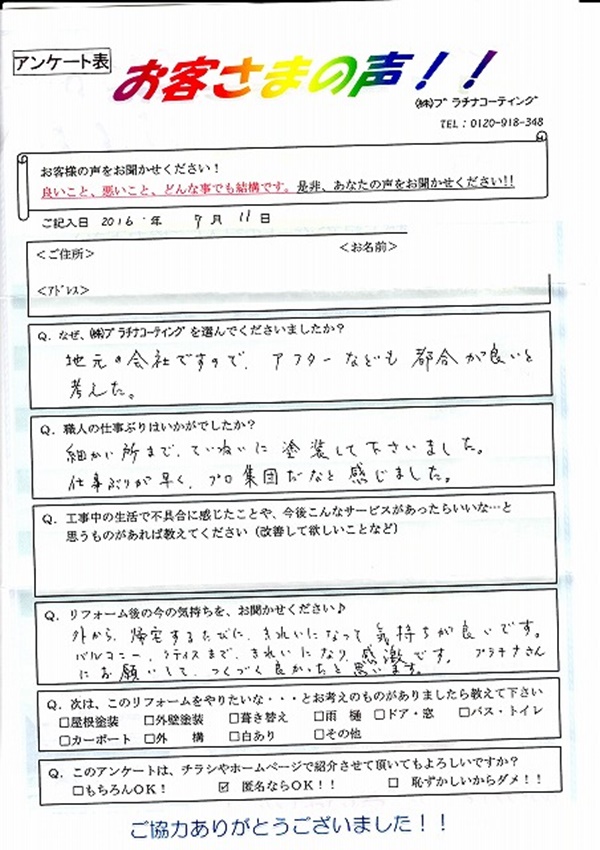 アンケート表
お客さまの声！！
㈱プラチナコーティング
TEL：0120-918-348
お客様の声をお聞かせください！
良いこと、悪いこと、どんな事でも結構です。是非、あなたの声をお聞かせください!!
ご記入日 2016 年 9 月 11 日
＜ご住所＞ ＜お名前＞
＜アドレス＞
Q．なぜ、㈱プラチナコーティングを選んでくださいましたか？
地元の会社ですので、アフターなども都合が良いと
考えた。
Q．職人の仕事ぶりはいかがでしたか？
細かい所まで、ていねいに塗装して下さいました。
仕事ぶりが早く、プロ集団だなと感じました。
Q．工事中の生活で不具合に感じたことや、今後こんなサービスがあったらいいな…と
思うものがあれば教えてください（改善して欲しいことなど）
Q．リフォーム後の今の気持ちを、お聞かせください♪
外から、帰宅するたびに、きれいになって気持ちが良いです。
バルコニー、ラティスまで、きれいになり、感激です。 プラチナさん
にお願いして、つくづく良かったと思います。
Q．次は、このリフォームをやりたいな・・・とお考えのものがありましたら教えて下さい
□屋根塗装 □外壁塗装 □葺き替え □雨 樋 □ドア・窓 □バス・トイレ
□カーポート □外 構 □白あり □その他
Q．このアンケートは、チラシやホームページで紹介させて頂いてもよろしいですか？
□もちろんOK！ ☑ 匿名ならOK！！ □ 恥ずかしいからダメ！！
ご協力ありがとうございました！！